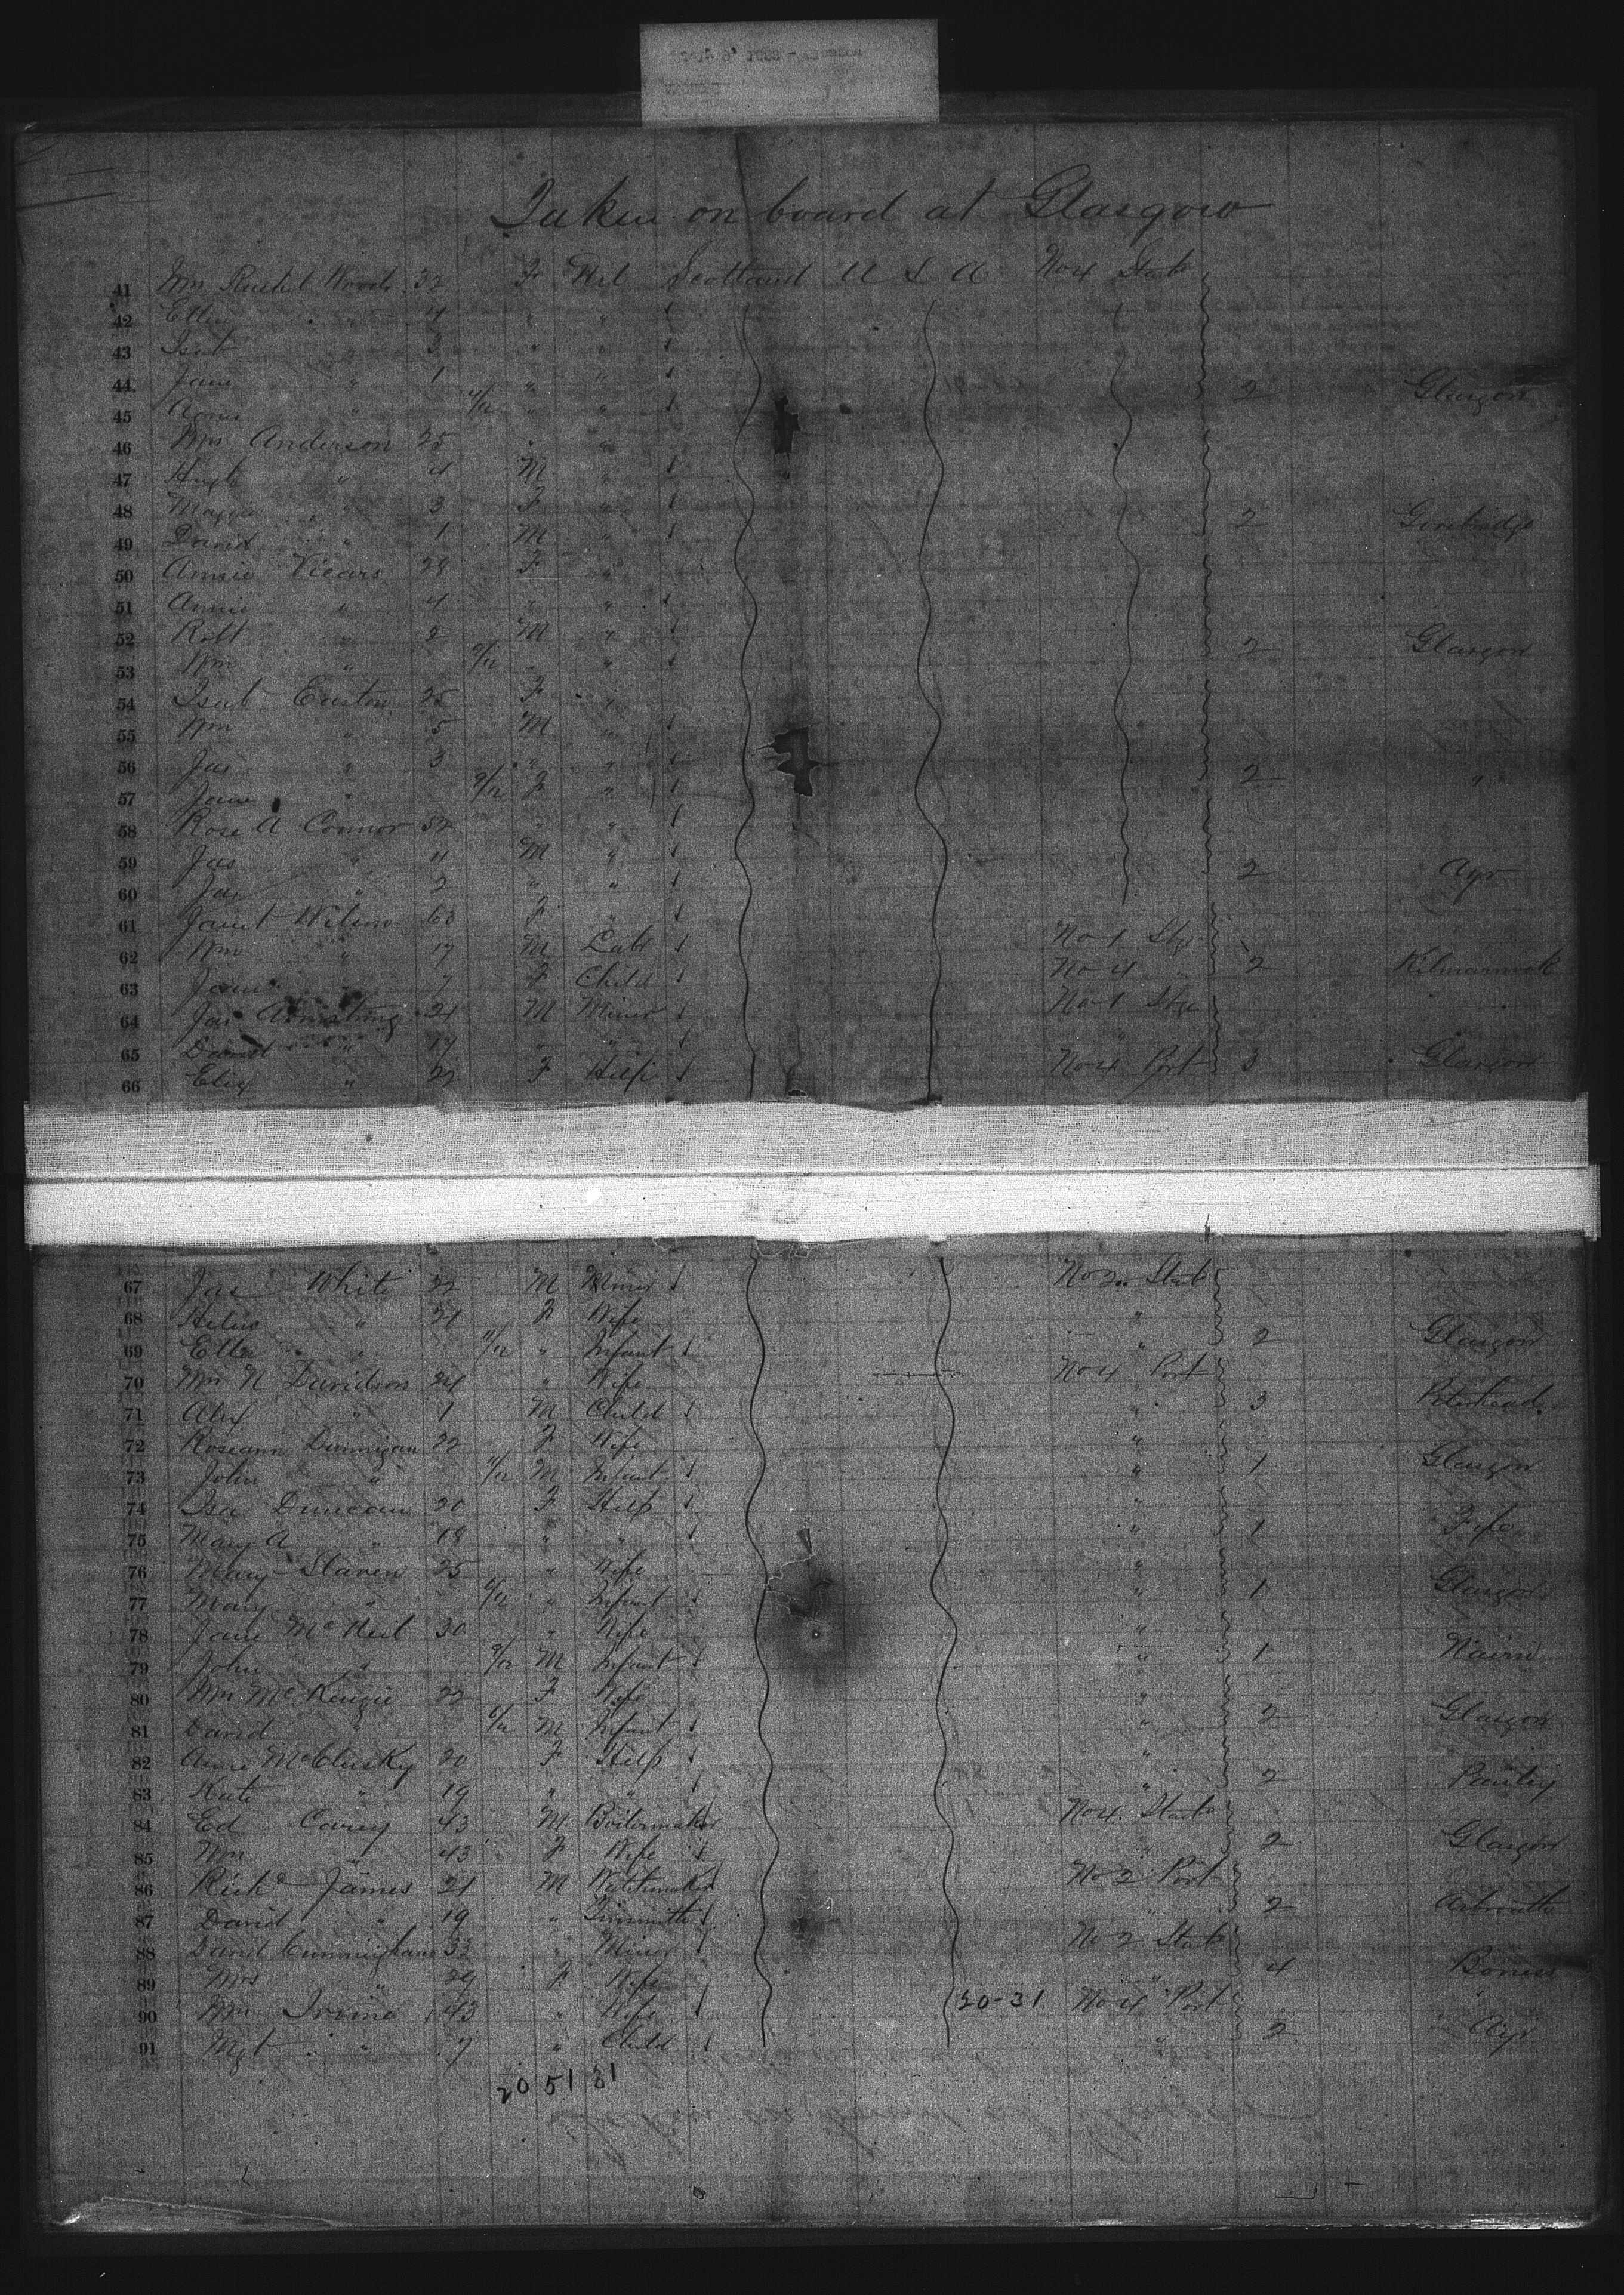 Taken on board at Glasgow
41 Mrs Woods 32 F Scotland U S A No 4 Starb
42 Ellen " 4 " "
43 Isab " 3 " "
44 Jane " 1 " " 2 Glasgow
45 Agnes " " "
46 Mrs Anderson 25 " "
47 Hugh " 4 M "
48 Maggie " 3 F " 2 Gorebridge
49 David " 1 M "
50 Annie Viears 28 F "
51 Annie " 4 " "
52 Robt " 2 M " 2 Glasgow
53 Wm " 9/12 " "
54 Isab Easton 25 F "
55 Wm " 5 M "
56 Jas " 3 " " 2 "
57 Jane " 9/12 F "
58 Rose A Connor 32 " "
59 Jas " 4 M " 2 Ayr
60 " 2 " "
61 Janet Wilson 63 F " No 1 Stge
62 Wm " 17 M Labr No 4 " 2 Kilmarnock
63 " 7 F Child
64 Jas Armstrong 21 M Miner No 1 Stge
65 David " 17 " " "
66 Eliz " 22 F Help No 4 Port 3 Glasgow
67 Jas White 22 M Miner No 2 Starb
68 Helen " 21 F Wife "
69 Ellen " 11/12 " Infant " 2 Glasgow
70 Mrs N Davidson 24 " Wife No 4 Port
71 Alex " 1 M Child " 3 Peterhead
72 Roseann Dunnigan 22 F Wife "
73 John " 11/12 M Infant " 1 Glasgow
74 Isa Duncan 20 F Help "
75 Mary A " 18 " " " 1 Fife
76 Mary Slaven 25 " Wife "
77 Mary " " Infant " 1 Glasgow
78 Jane McNeil 30 " Wife "
79 John " 9/12 M Infant " 1 Nairn
80 Mrs McKenzie 22 F Wife "
81 David " M Infant " 2 Glasgow
82 Annie McClusky 20 F Help "
83 Kate " 19 " " " 2
84 Ed Carey 43 M Boilermaker No 4 Starb
85 Mrs " 43 F Wife " 2 Glasgow
86 Richd James 21 M Watchmaker No 2 Port
87 David " 19 " Tinsmith " 2 Arbroath
88 David Cunningham 33 " Miner No 2 Starb
89 Mrs " 29 F Wife " 4 Boness
90 Mrs Irvine 43 " Wife 20-31 No 4 Port
91 Mgt " 7 " Child " 2 Ayr
20 51 31